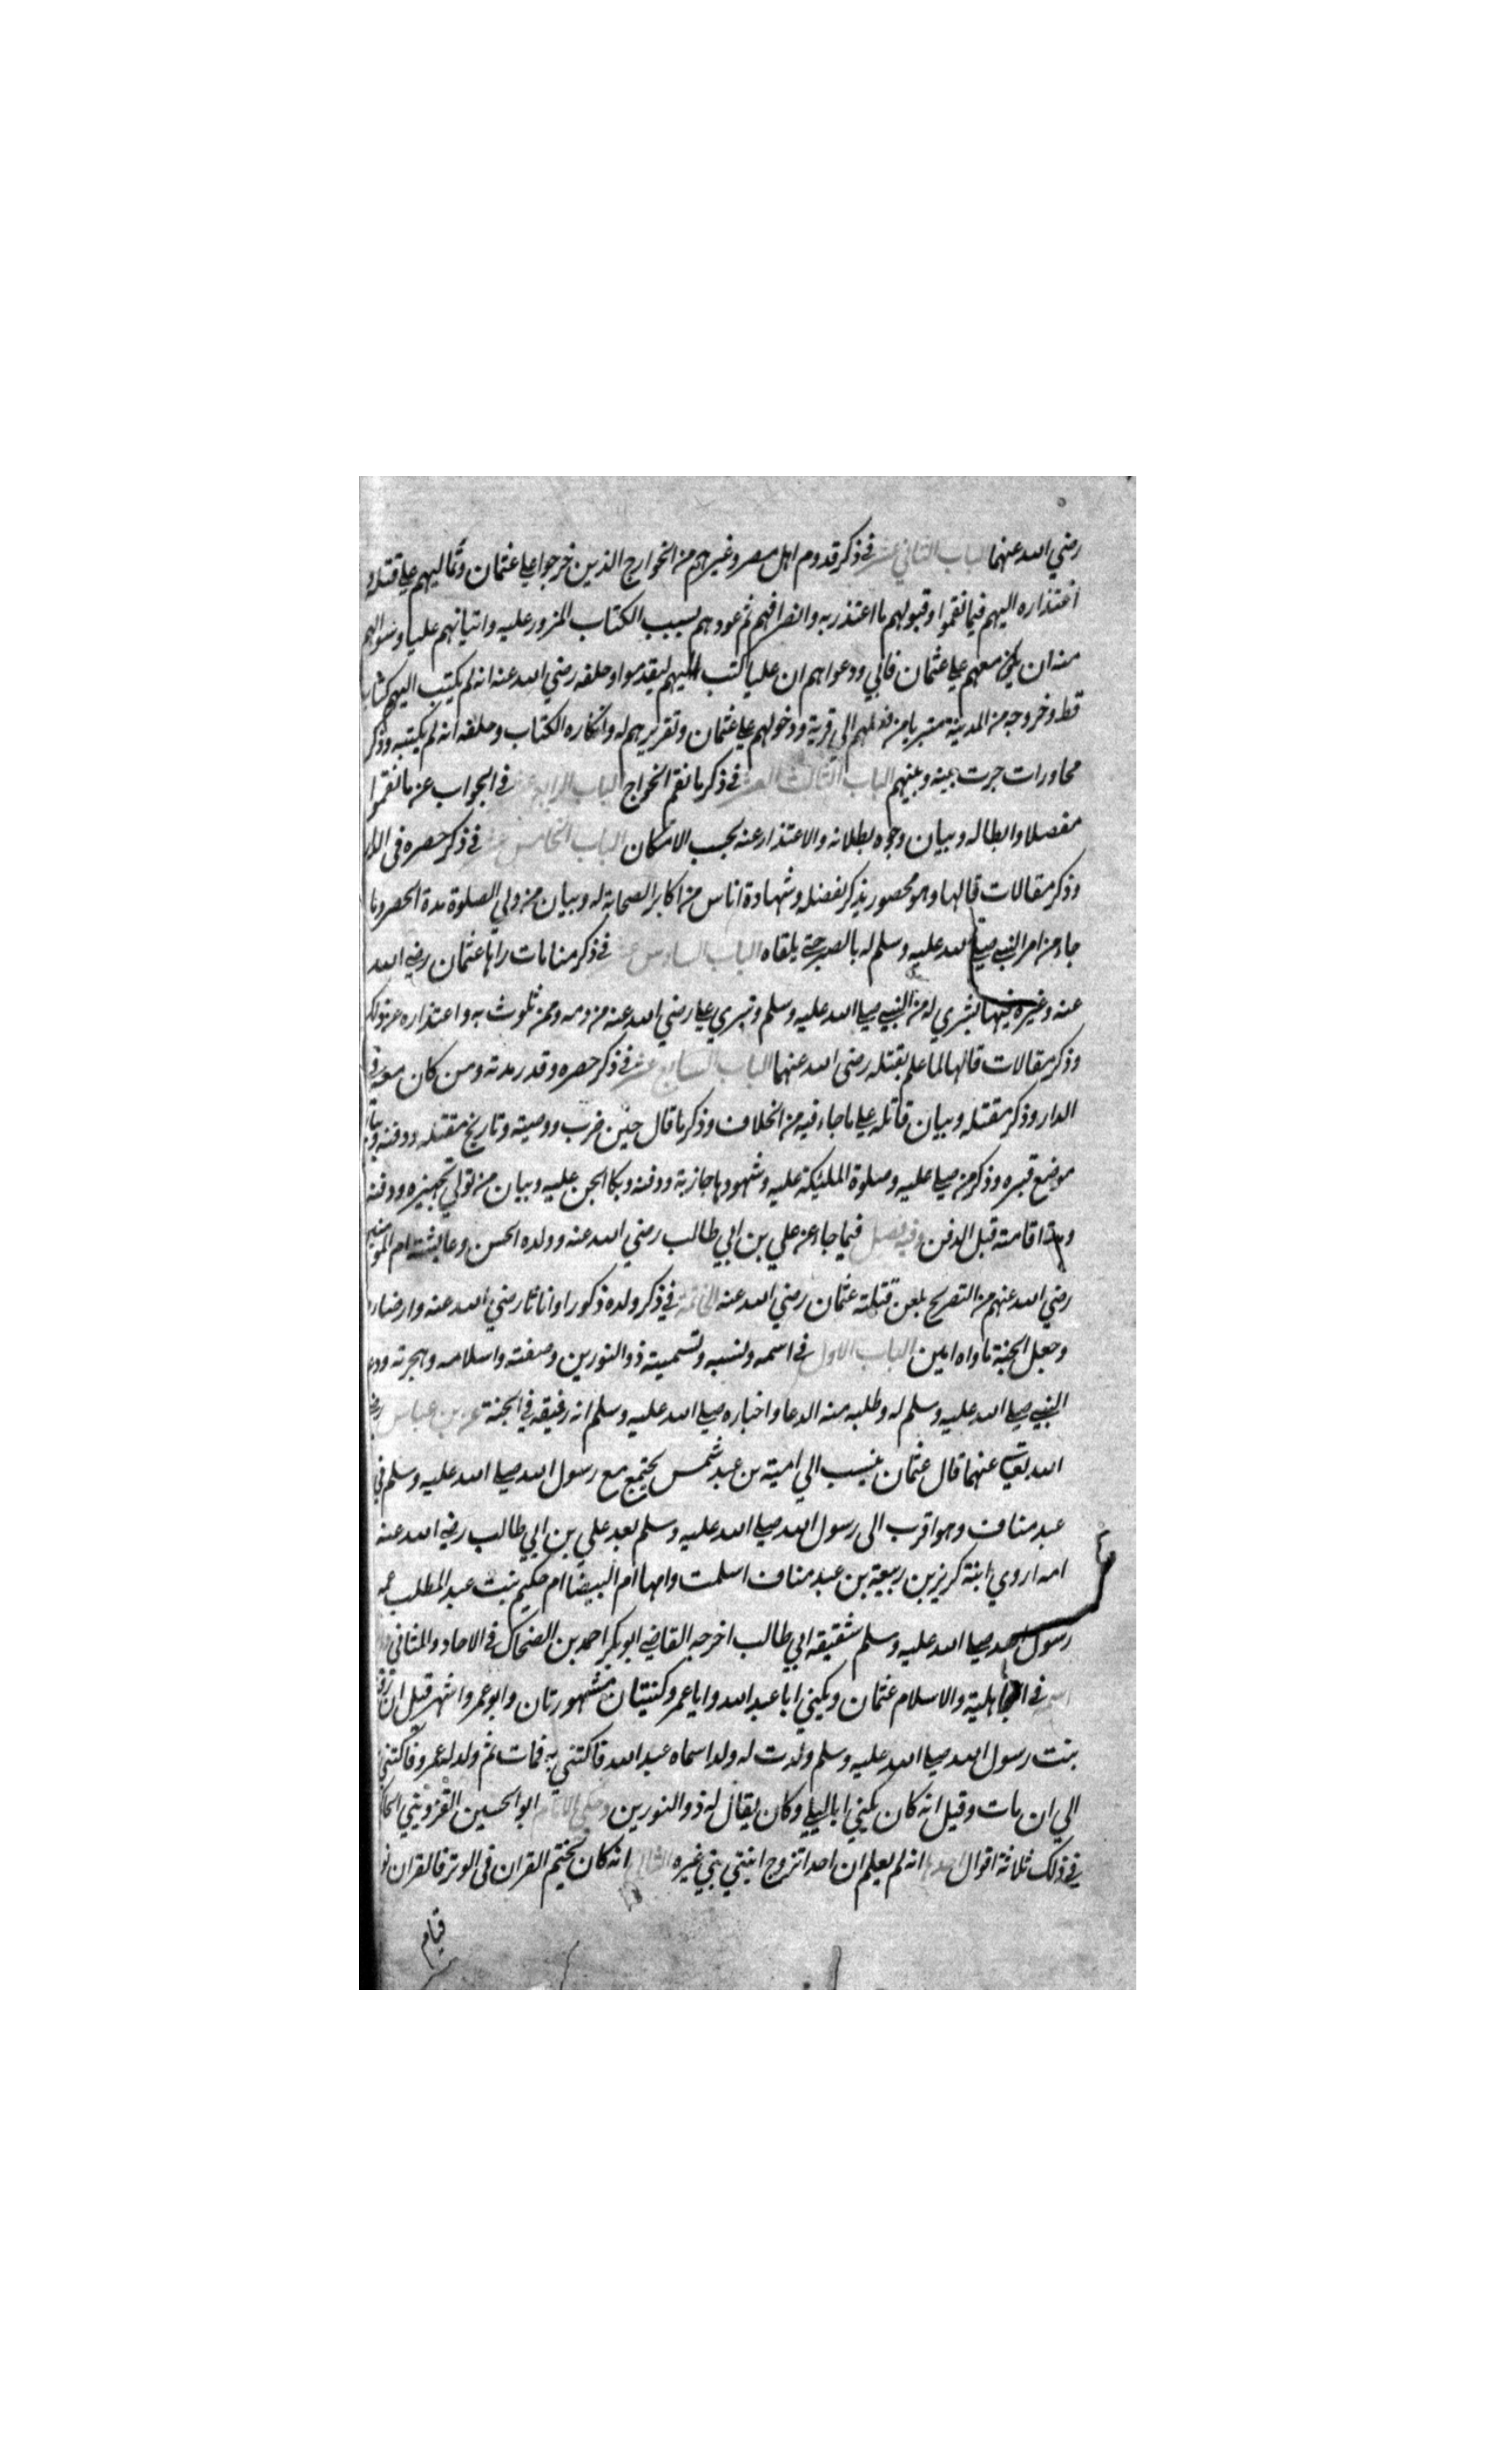 رضي الله عنهما الباب الثاني عشر في ذكر قدوم اهل مصر وغيرهم من الخوارج الذين خرجوا علي عثمان وتماليهم علي قتله و
اعتذاره اليهم فيما نقموا وقبولهم ما اعتذر به وانصرافهم ثم عودهم بسبب الكتاب المزور عليه واتيانهم عليا وسوالهم
منه ان يكون معهم علي عثمان فابي ودعواهم ان عليا كتب اليهم ليقدموا وحلفه رضي الله عنه انه لم يكتب اليهم كتابا
قط وخروجه من المدينة متبريا من فعلهم الى قرية ودخولهم علي عثمان وتقريرهم له وانكاره الكتاب وحلفه انه لم يكتبه وذكر
محاورات جرت بينه وبينهم الباب الثالث العشر في ذكر ما نقم الخوارج الباب الرابع عشر في الجواب عن ما نقموا
مفصلا وابطاله وبيان وجوه بطلانه والاعتذار عنه بحسب الامكان الباب الخامس عشر في ذكر حصره في الدار
وذكر مقالات قالها وهو محصور يذكر بفضله وشهادة اناس من اكابر الصحابة له وبيان من ولي الصلوة مدة الحصر وما
جاء من امر النبي صلي الله عليه وسلم له بالصبر حتي يلقاه الباب السادس عشر في ذكر منامات راها عثمان رضي الله
عنه وغيره فيها بشري له من النبي صلي الله عليه وسلم وتبري علي رضي الله عنه من دمه وممن تلوث به واعتذاره عن ذلك
وذكر مقالات قالها لما علم بقتله رضى الله عنهما الباب السابع عشر في ذكر حصره وقدر مدته ومن كان معه في
الدار وذكر مقتله وبيان قاتله علي ما جاء فيه من الخلاف وذكر ما قال حين ضرب ووصيته وتاريخ مقتله ودفنه وبيان
موضع قبره وذكر من صلي عليه وصلوة الملئكة عليه وشهودها جنازته ودفنه وبكا الجن عليه وبيان من تولي تجهيزه ودفنه
ومدة اقامته قبل الدفن وفيه فصل فيما جاء عن علي بن ابي طالب رضي الله عنه وولده الحسن وعايشة ام المومنين
رضي الله عنهم من التصريح بلعن قتلة عثمان رضي الله عنه الخاتمة في ذكر ولده ذكورا واناثا رضي الله عنه وارضاه
وجعل الجنة ماواه امين الباب الاول في اسمه ونسبه وتسميته ذو النورين وصفته واسلامه وهجرته ودعا
النبي صلي الله عليه وسلم له وطلبه منه الدعا واخباره صلي الله عليه وسلم انه رفيقه في الجنة عن بن عباس رضي
الله تعالى عنهما قال عثمان ينسب الي امية بن عبد شمس يجتمع مع رسول الله صلي الله عليه وسلم في
عبد مناف وهو اقرب الى رسول الله صلي الله عليه وسلم بعد علي بن ابي طالب رضي الله عنه
امه اروي ابنة كريز بن ربيعة بن عبد مناف اسلمت وامها ام البيضا ام حكيم بنت عبد المطلب عمة
رسول الله صلي الله عليه وسلم شقيقة ابي طالب اخرجه القاضي ابو بكر احمد بن الضحاك في الاحاد والمثاني
اسمه في الجاهلية والاسلام عثمان ويكني ابا عبد الله وابا عمر وكنيتان مشهورتان وابو عمر واشهر قيل ان رقية
بنت رسول الله صلي الله عليه وسلم ولدت له ولدا سماه عبد الله فاكتني به فمات ثم ولد له عمرو فاكتني
الي ان مات وقيل انه كان يكني ابا ليلي وكان يقال له ذو النورين وحكي الامام ابو الحسين القزويني الحاكم
في ذلك ثلاثة اقوال احدها انه لم يعلم ان احدا تزوج ابنتي نبي غيره الثاني انه كان يختم القران في الوتر فالقران نور
قيام